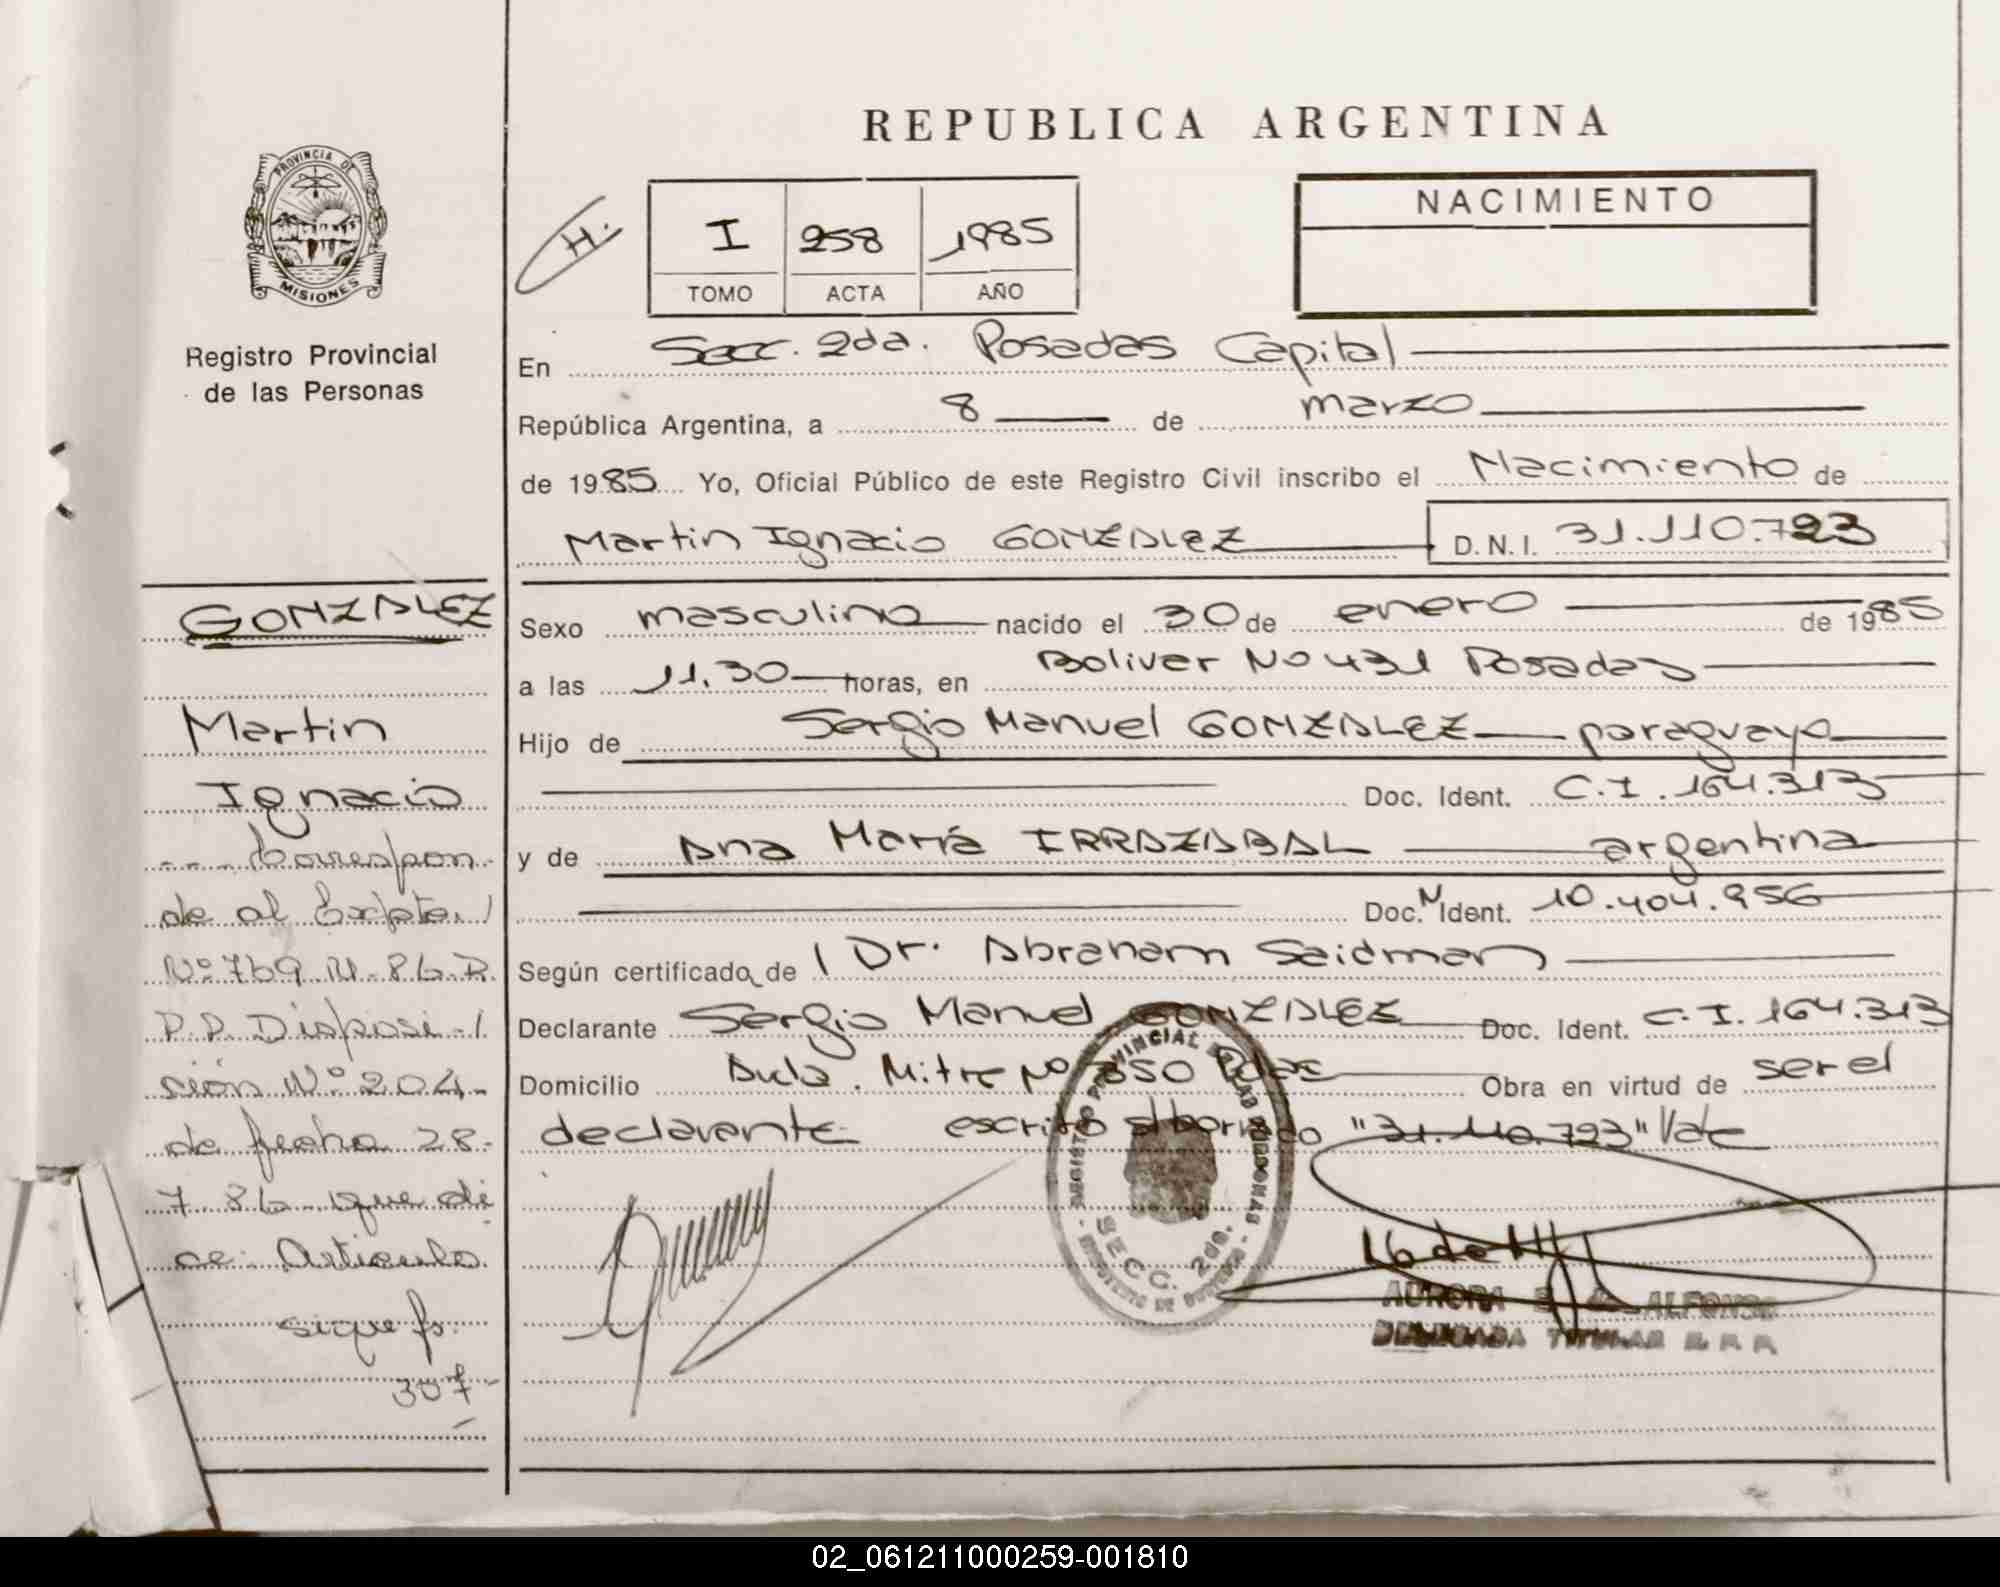 PROVINCIA DE
MISIONES
Registro Provincial
de las Personas
GONZALEZ
Martin
Ignacio
--- Correspon-
de al Expte.
Nº 769
P.P. Disposi-
ción Nº 204-
de fecha 28-
7-86- que di
ce: Artículo
sigue fs.
307-
REPUBLICA ARGENTINA
H.
I 258 1985
TOMO ACTA AÑO
NACIMIENTO
En Secc. 2da. Posadas Capital
República Argentina, a 8 de marzo
de 1985 Yo, Oficial Público de este Registro Civil inscribo el Nacimiento de
Martin Ignacio GONZALEZ D.N.I. 31.110.723
Sexo masculino nacido el 30 de enero de 1985
a las 11.30 horas, en Bolivar No 431 Posadas
Hijo de Sergio Manuel GONZALEZ paraguayo
Doc. Ident. C.I. 164.313
y de Ana María IRRAZABAL argentina
Doc. Ident. 10.404.956
Según certificado de Dr. Abraham Seidman
Declarante Sergio Manuel GONZALEZ Doc. Ident. C.I. 164.313
Domicilio Avda. Mitre Nº 350 Pdas Obra en virtud de ser el
declarante escrito s/borrado "31.110.723" Vale
SECC. 2da.
AURORA ALFONSO
DELEGADA TITULAR R.P.P.
02_061211000259-001810